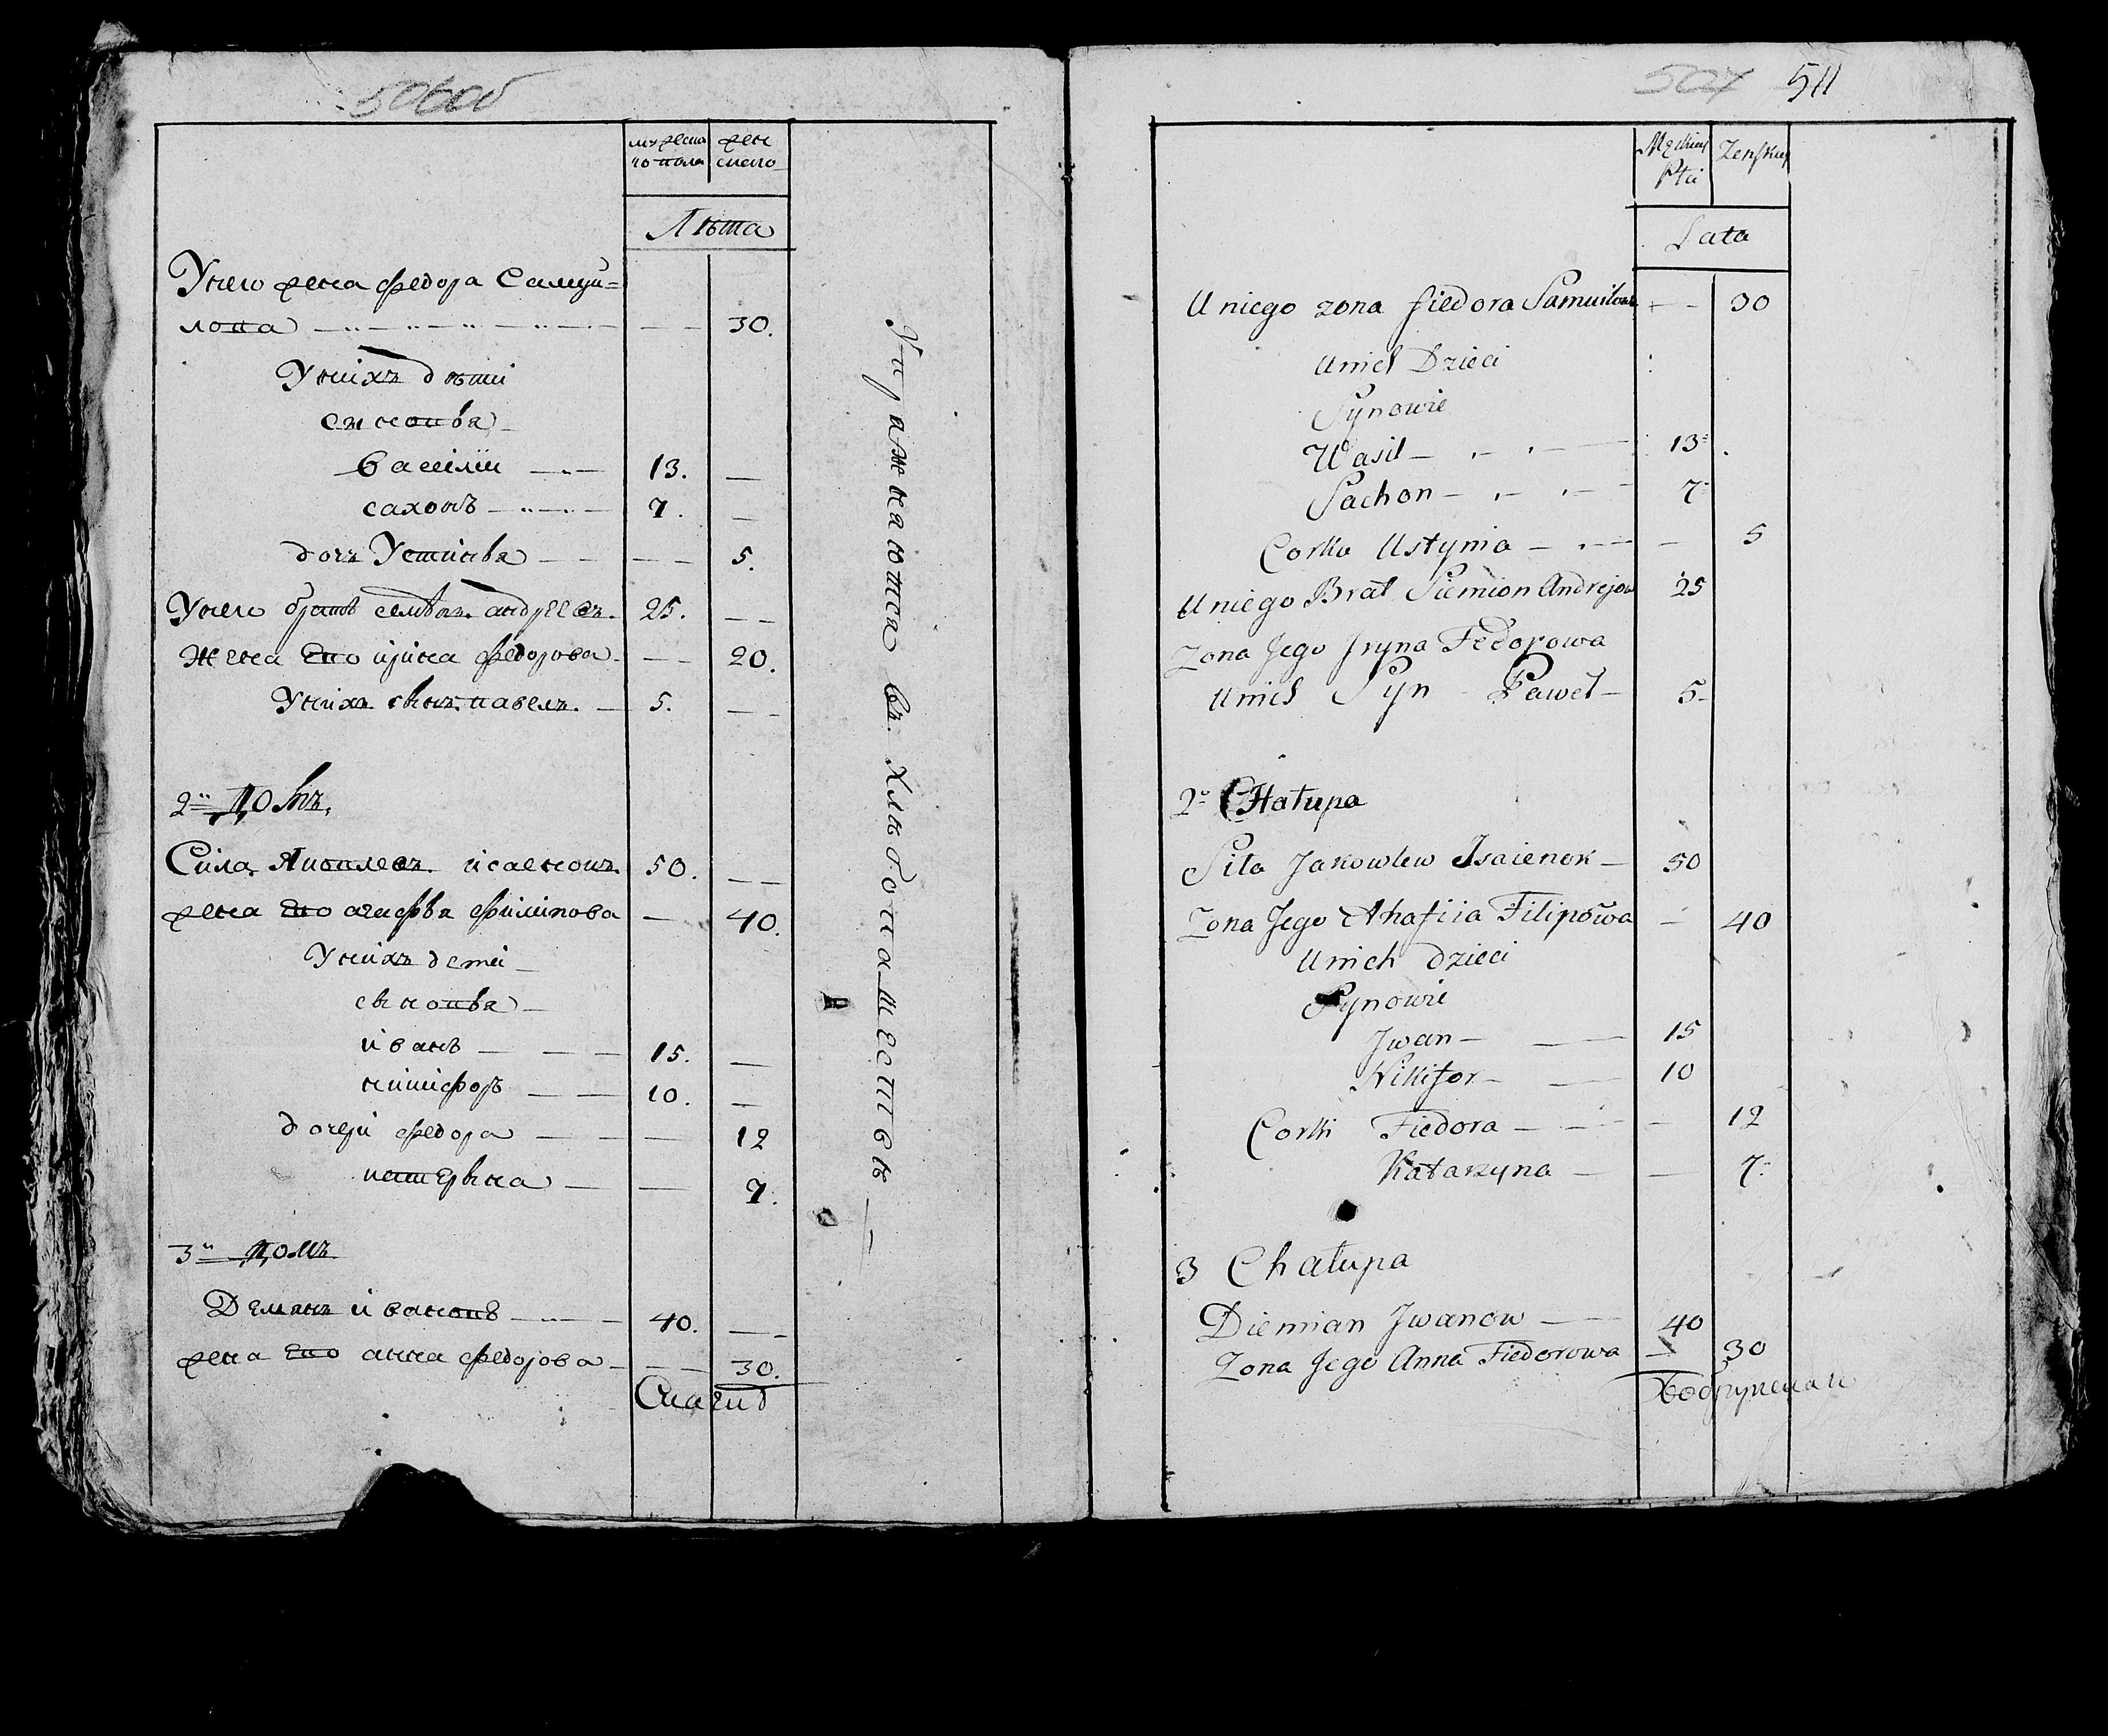 506об
мужеска
го пола
жен
скаго
Лѣта
У него жена федора Самуй=
лова 30.
У нихъ дѣти
сыновья
василiи 13.
сахонъ 7.
дочь Устинья 5.
У него братъ семѣнъ андреевъ 25.
Жена Его ирина федорова 20.
У нихъ сынъ павелъ. 5.
2й Домъ,
Сила Яковлевъ исаенокъ 50.
жена Его агафья филипова 40.
У нихъ дети
сыновья
иванъ 15.
никифоръ 10.
дочери федора 12
катерына 7.
3й Домъ
Демянъ ивановъ 40.
жена Его анна федорова 30.
Упражнаются въ хлѣбопашествѣ
507 511
Męskiej
Płci
Zeńskiej
Lata
U niego zona fiedora Samuilowa 30
U nich Dzieci
Synowie
Wasil 13
Sachon 7
Corka Ustynia 5
U niego Brat Siemion Andrejow 25
Zona Jego Jryna Fedorowa
U nich Syn Paweł 5
2 CHałupa
Siła Jakowlew Isaienok 50
Zona Jego Ahafiia Filipowa 40
U nich dzieci
Synowie
Jwan 15
Nikifor 10
Corki Fiedora 12
Katarzyna 7
3 Chałupa
Diemian Jwanow 40
Zona Jego Anna Fiedorowa 30